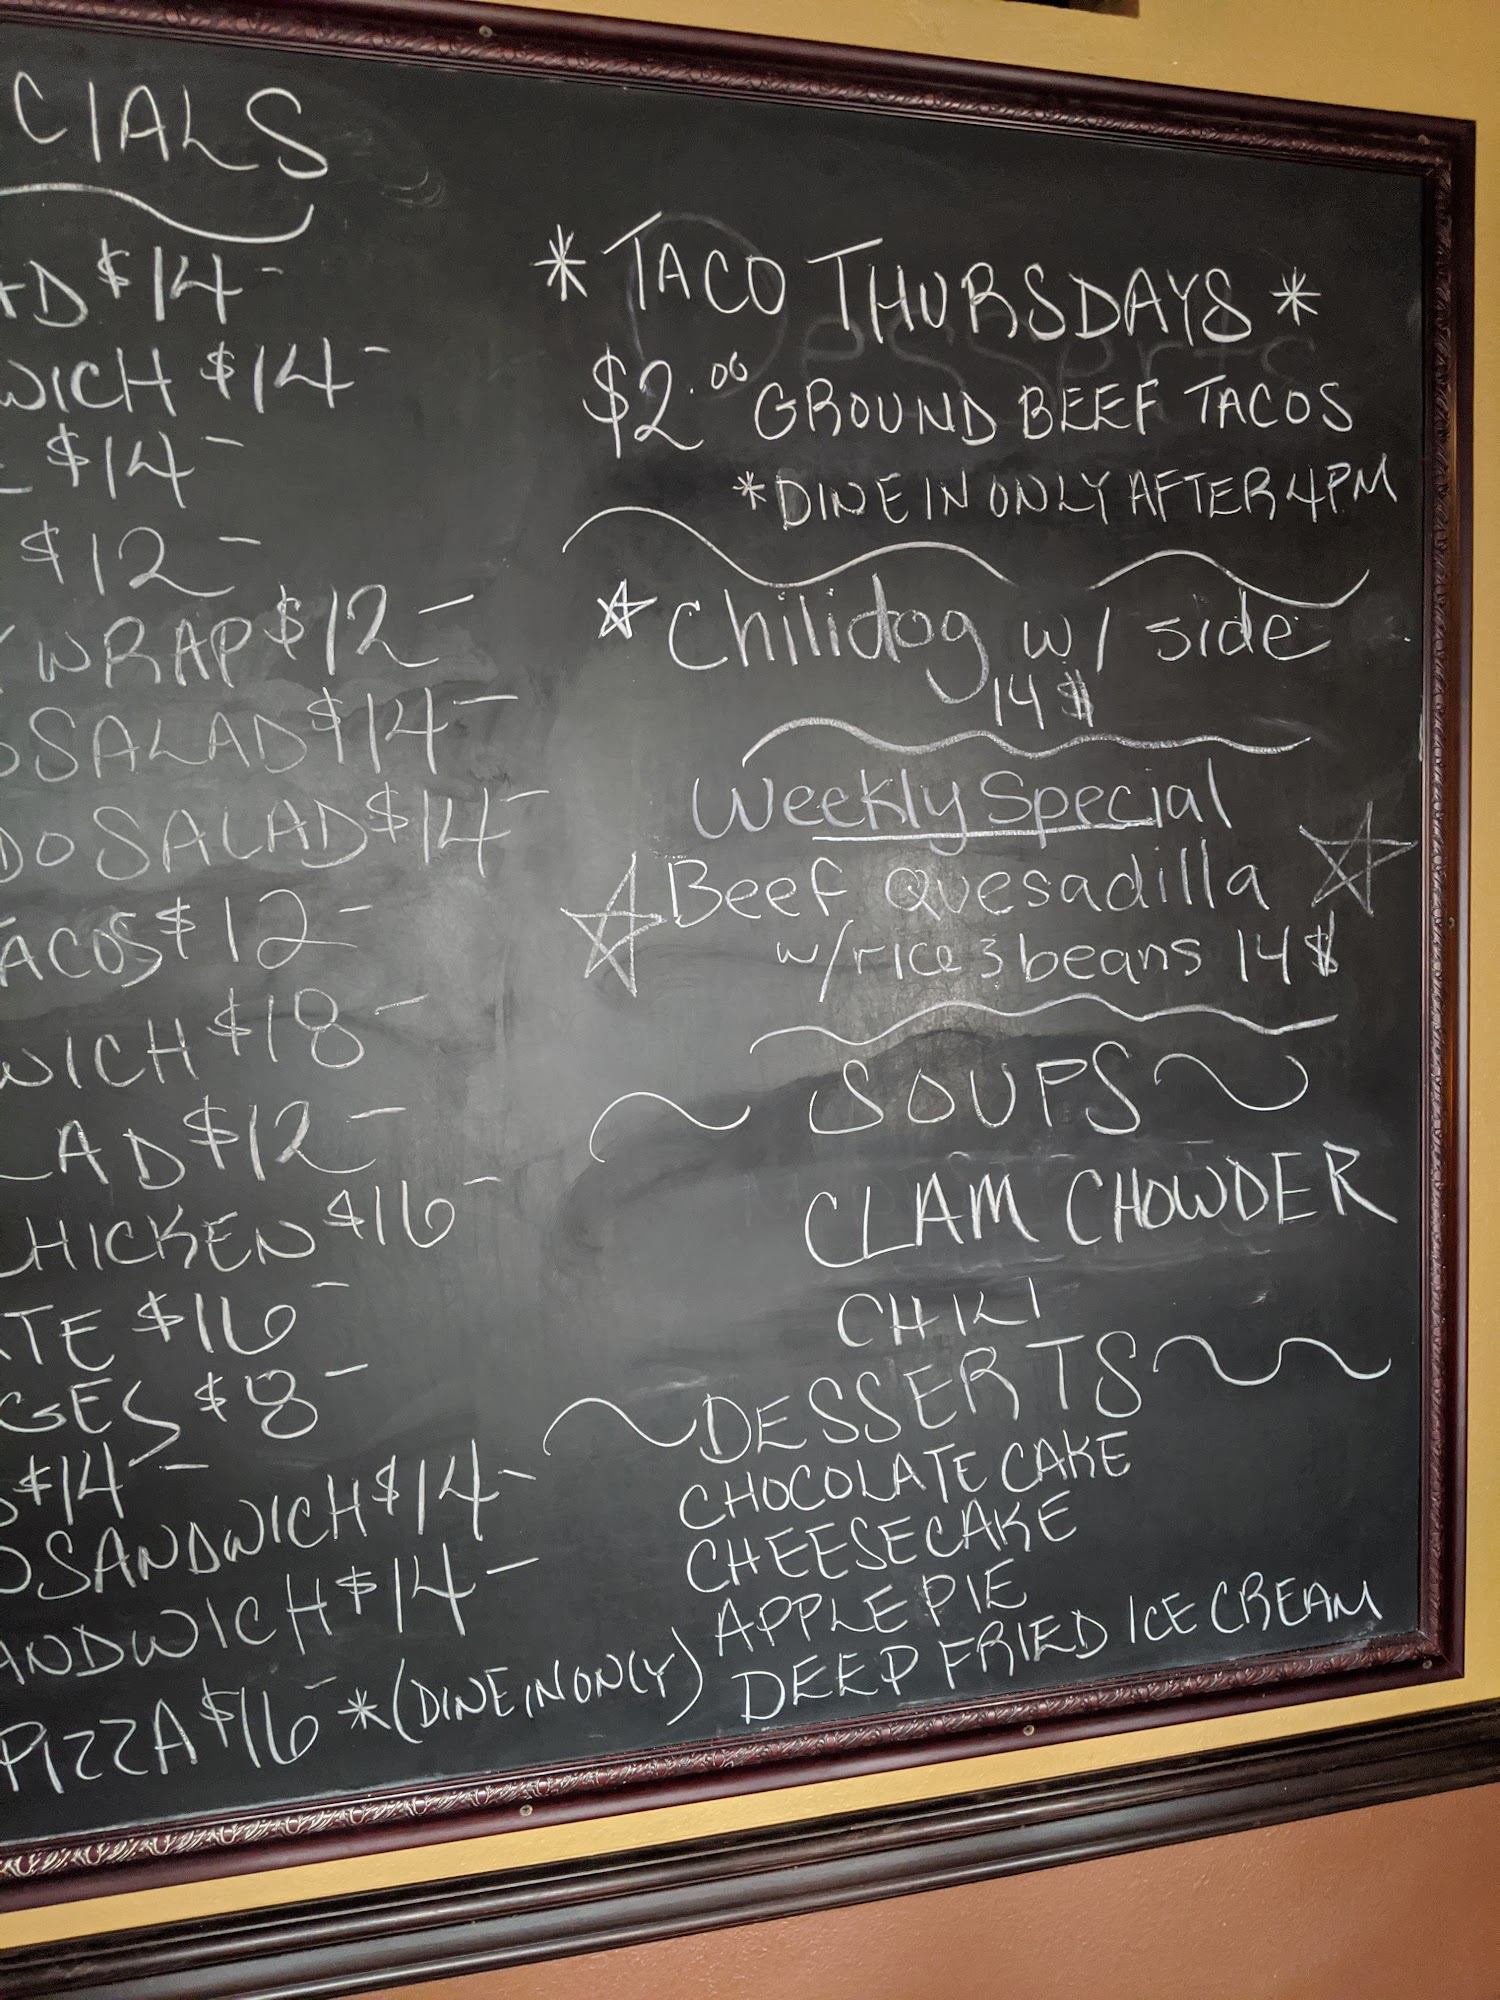 CIALS
AD $14-
WICH $14-
E $14-
$12-
WRAP $12-
O SALAD $14-
DO SALAD $14-
ACOS $12-
WICH $18-
LAD $12-
HICKEN $16-
TE $16-
GES $8-
$14-
O SANDWICH $14-
ANDWICH $14-
PIZZA $16- *(DINE IN ONLY)
* TACO THURSDAYS *
$2.00 GROUND BEEF TACOS
*DINE IN ONLY AFTER 4PM
Chilidog w/ side
14$
Weekly Special
Beef Quesadilla
w/rice & beans 14$
SOUPS
CLAM CHOWDER
CHILI
DESSERTS
CHOCOLATE CAKE
CHEESECAKE
APPLE PIE
DEEP FRIED ICE CREAM